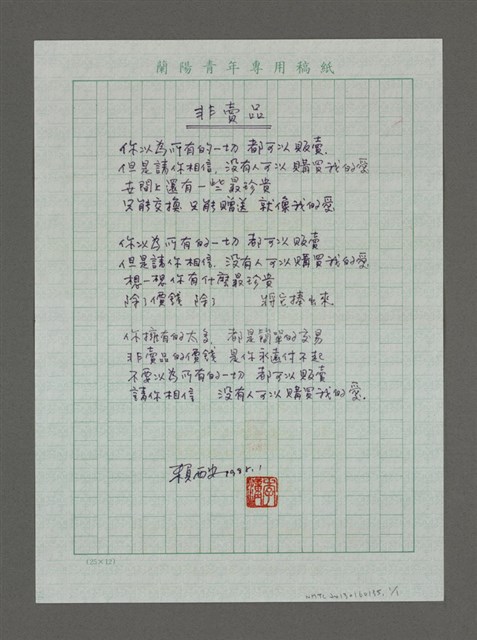 蘭陽青年專用稿紙
非賣品
你以為所有的一切 都可以販賣
但是請你相信，沒有人可以購買我的愛
世間上還有一些最珍貴
只能交換 只能贈送 就像我的愛
你以為所有的一切 都可以販賣
但是請你相信，沒有人可以購買我的愛
想一想你有什麼最珍貴
除了價錢 除了 將它捧出來
你擁有的太多，都是簡單的交易
非賣品的價錢 是你永遠付不起
不要以為所有的一切 都可以販賣
請你相信 沒有人可以購買我的愛。
賴西安
(25×12)